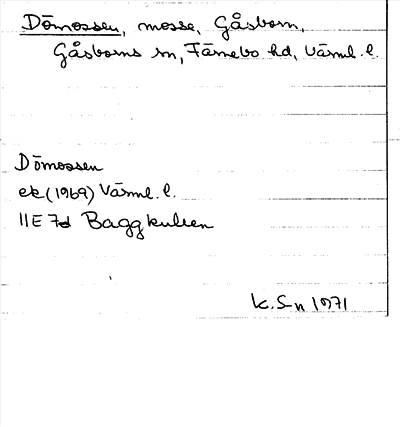 Dömossen, mosse, Gåsborn,
Gåsborns sn, Färnebo hd, Värml. l.
Dömossen
ek (1969) Värml. l.
11E 7d Baggkullen
K. S-n 1971